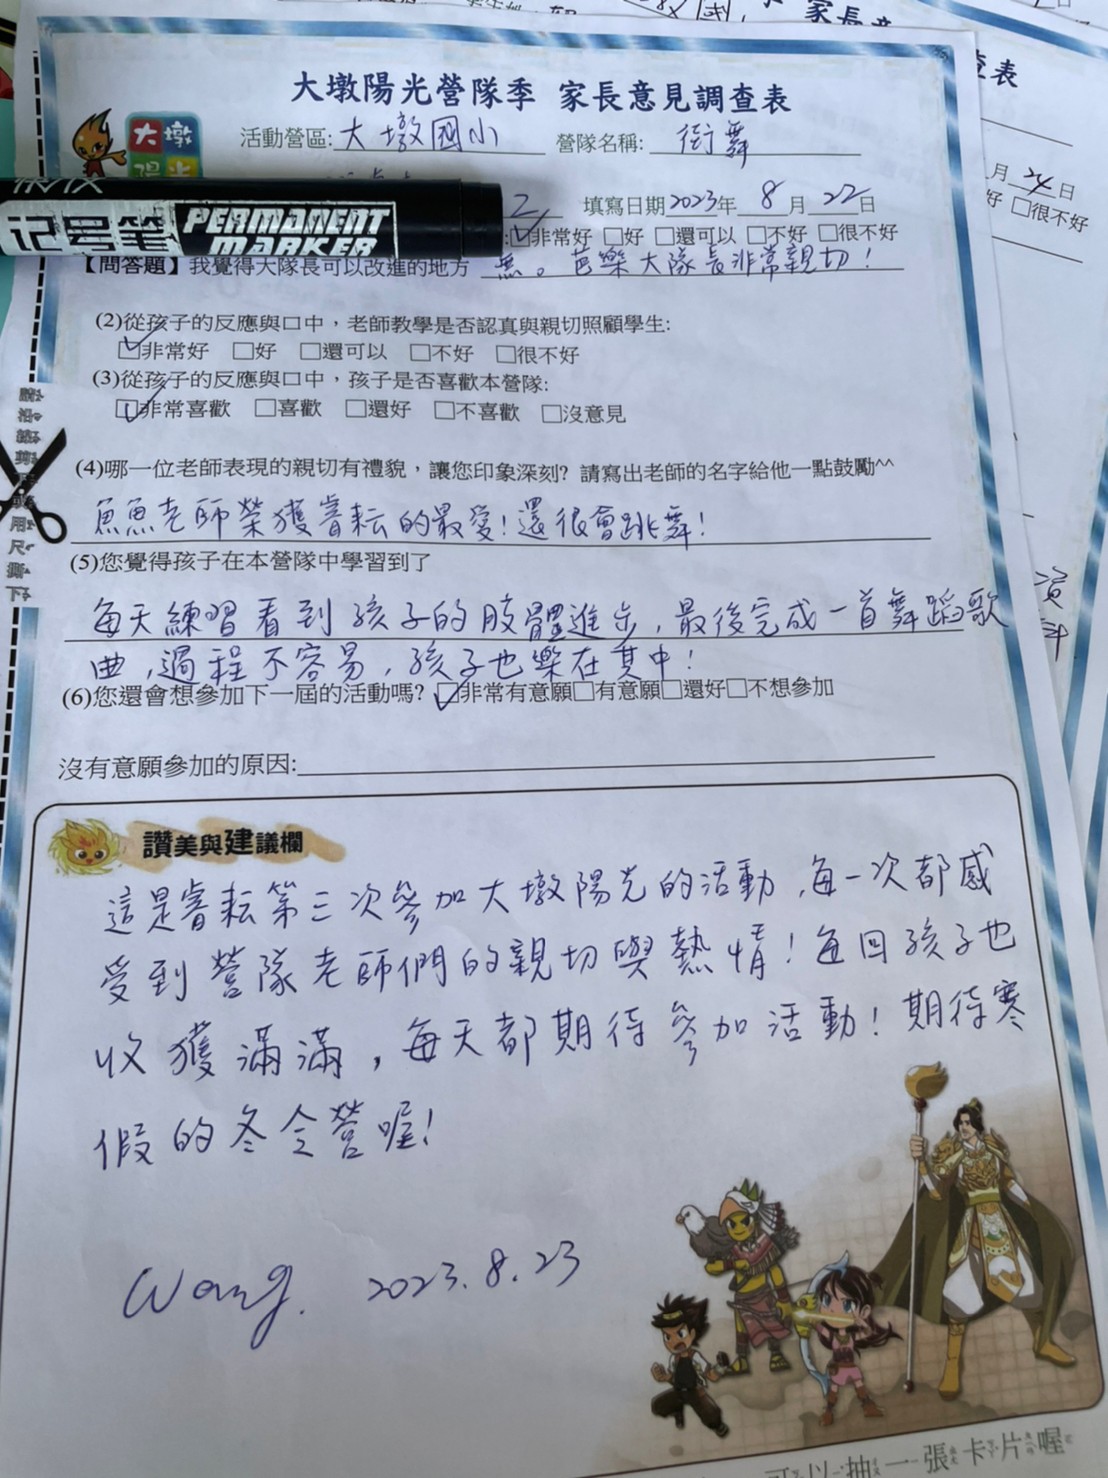 大墩陽光營隊季 家長意見調查表
大墩
陽光
活動營區:大墩國小 營隊名稱:街舞
2 填寫日期2023年8月22日
记号笔 PERMANENT MARKER
☑非常好 □好 □還可以 □不好 □很不好
【問答題】我覺得大隊長可以改進的地方 無。芭樂大隊長非常親切!
(2)從孩子的反應與口中,老師教學是否認真與親切照顧學生:
☑非常好 □好 □還可以 □不好 □很不好
(3)從孩子的反應與口中,孩子是否喜歡本營隊:
☑非常喜歡 □喜歡 □還好 □不喜歡 □沒意見
(4)哪一位老師表現的親切有禮貌,讓您印象深刻? 請寫出老師的名字給他一點鼓勵^^
魚魚老師榮獲睿耘的最愛!還很會跳舞!
(5)您覺得孩子在本營隊中學習到了
每天練習看到孩子的肢體進步,最後完成一首舞蹈歌
曲,過程不容易,孩子也樂在其中!
(6)您還會想參加下一屆的活動嗎? ☑非常有意願□有意願□還好□不想參加
沒有意願參加的原因:
讚美與建議欄
這是睿耘第三次參加大墩陽光的活動,每一次都感
受到營隊老師們的親切與熱情!每回孩子也
收獲滿滿,每天都期待參加活動!期待寒
假的冬令營喔!
Wang. 2023.8.23
可以抽一張卡片喔
查表
月24日
好 □很不好